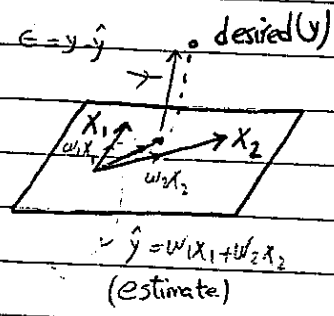 ϵ = y - ŷ
desired (y)
X₁
w₁X₁
X₂
w₂X₂
ŷ = w₁X₁ + w₂X₂
(estimate)